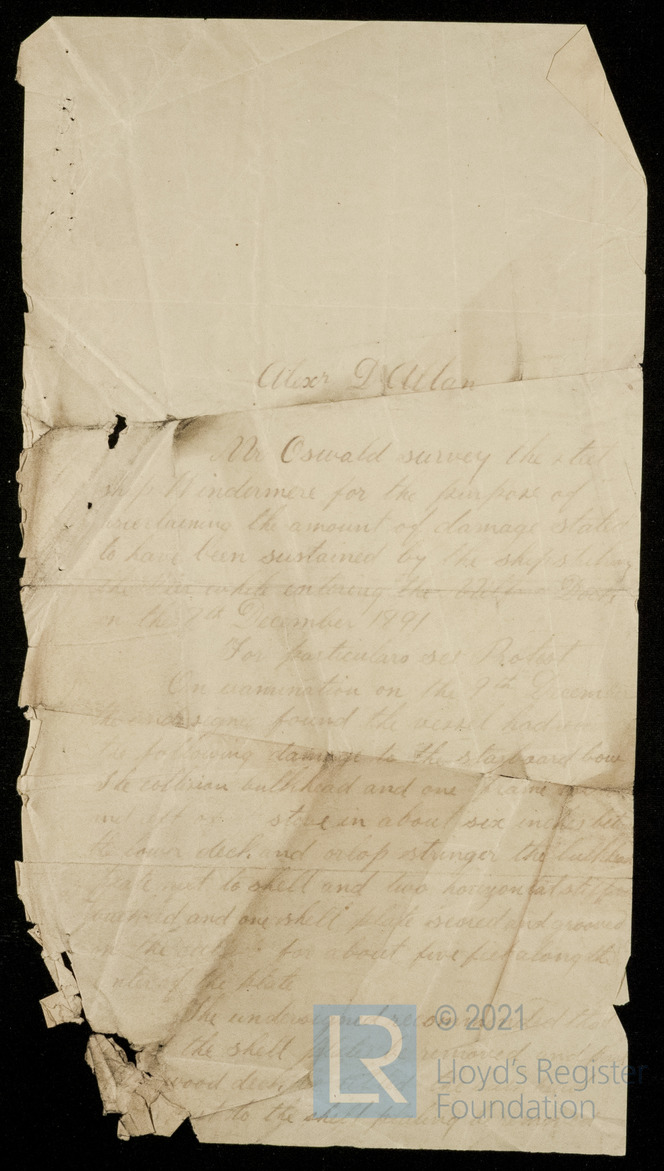 Alexr D Allan
Mr Oswald survey the steel
ship Windermere for the purpose of
ascertaining the amount of damage stated
to have been sustained by the ship striking
the Pier while entering the Docks
on the 7th December 1891
For particulars see Protest
On examination on the 9th December
the undersigned found the vessel had
the following damage to the starboard bow
The collision bulkhead and one frame
and aft stove in about six inches
the lower deck and orlop stringer the bulkhead
plate next to shell and two horizontal
and one shell plate scored and grooved
on the for about five feet along the
center of the plate
The undersigned recommended that
the shell plate removed
wood deck
to the shell
LR
© 2021
Lloyd's Register
Foundation